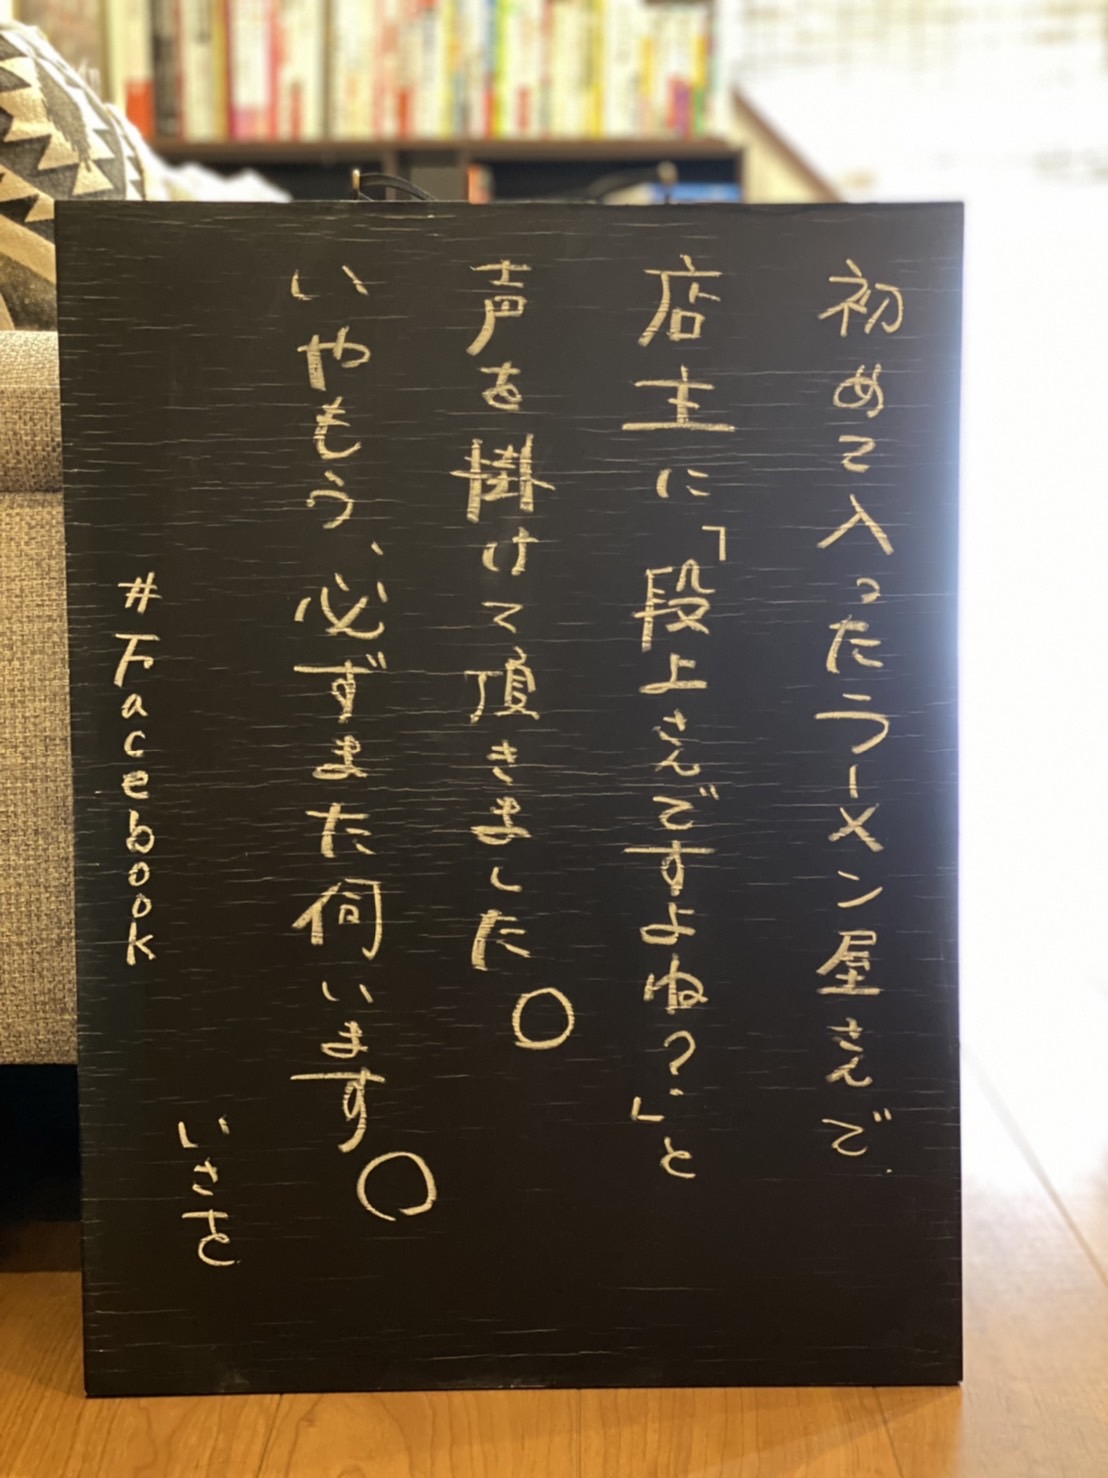 初めて入ったラーメン屋さんで
店主に「段上さんですよね?」と
声を掛けて頂きました。
いやもう、必ずまた伺います。
#下acebook
いさを